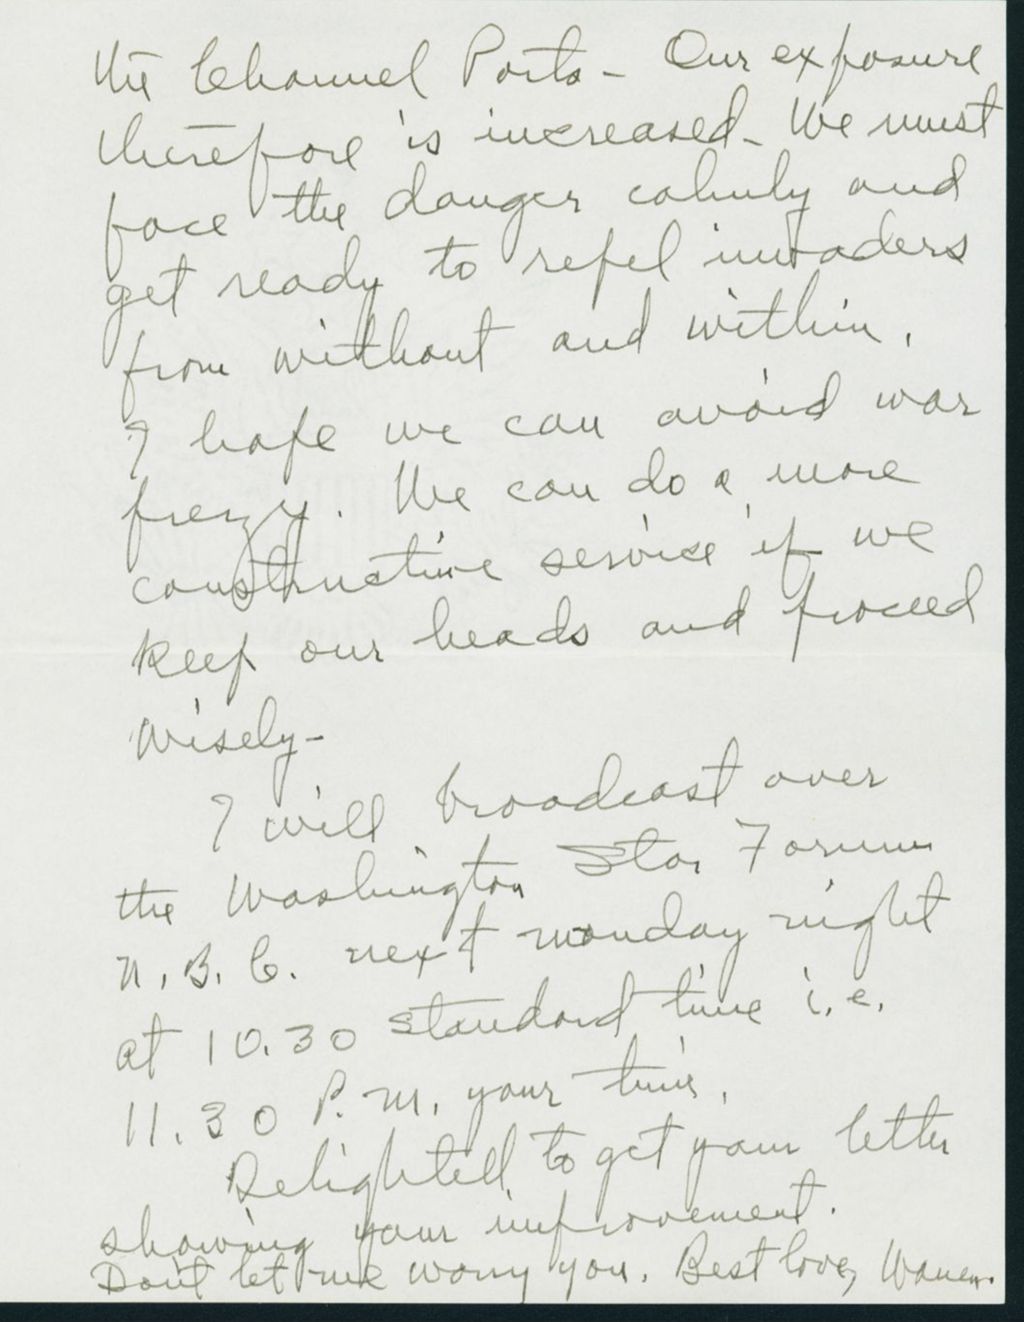 the Channel Ports - Our exposure
therefore is increased - We must
face the danger calmly and
get ready to repel invaders
from without and within.
I hope we can avoid war
frezy. We can do a more
constructive service if we
keep our heads and proceed
wisely -
I will broadcast over
the Washington Star Forum
N.B.C. next monday night
at 10.30 standard time i.e.
11.30 P.M. your time.
Delighted to get your letter
showing your improvement.
Don't let me worry you. Best love, Warren.